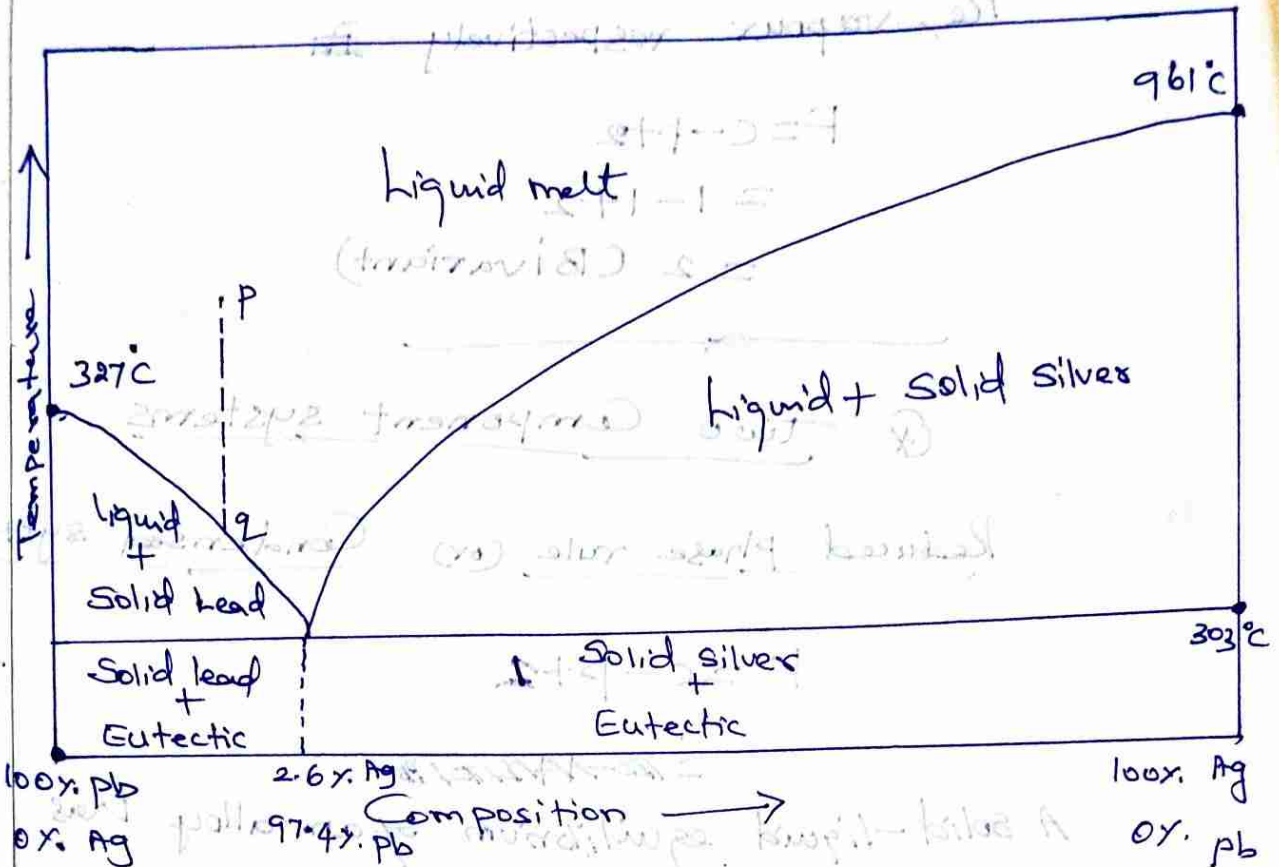 961°C
Liquid melt
P
327°C
Temperature
Liquid + Solid Silver
Liquid
+
Solid Lead
q
303°C
Solid lead
+
Eutectic
Solid silver
+
Eutectic
100%. Pb
0%. Ag
2.6%. Ag
97.4%. Pb
Composition
100%. Ag
0%. Pb